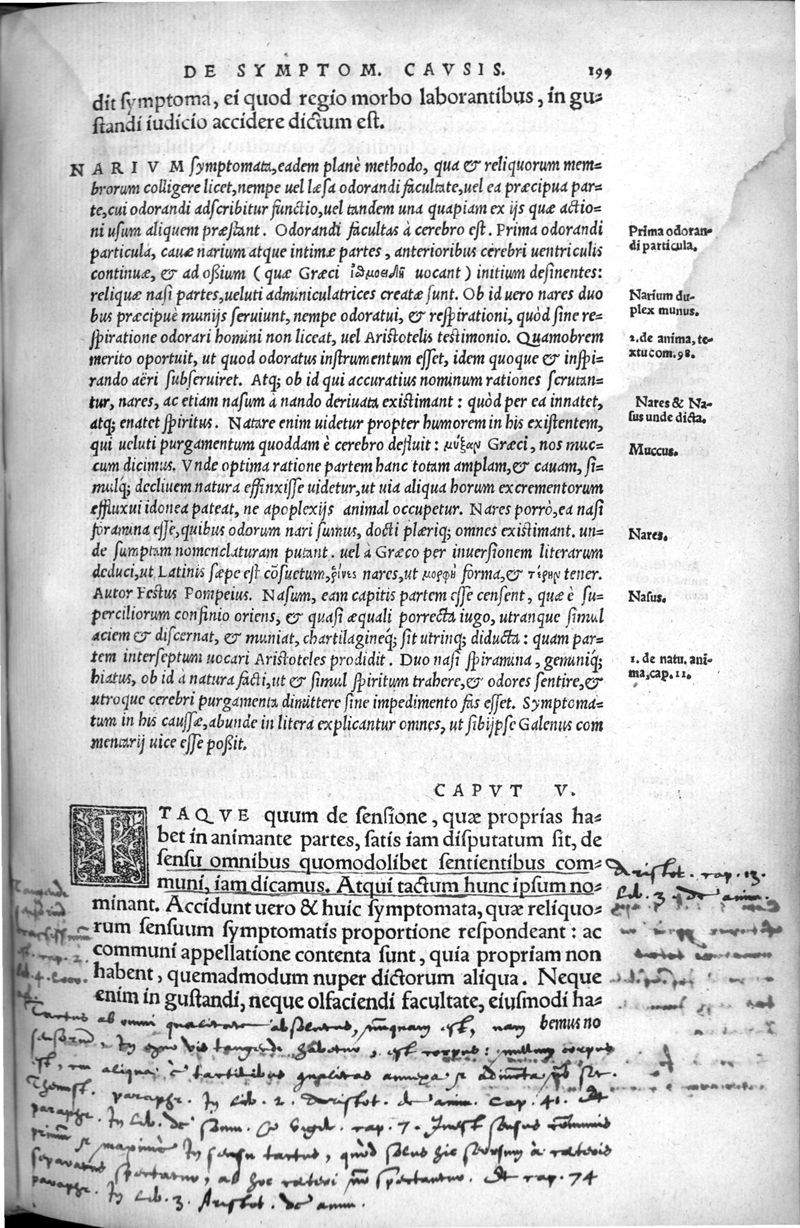 DE SYMPTOM. CAVSIS. 199
dit symptoma, ei quod regio morbo laborantibus, in gu-
standi iudicio accidere dictum est.
NARIVM symptomata, eadem planè methodo, qua & reliquorum mem-
brorum colligere licet, nempe uel læsa odorandi facultate, uel ea præcipua par-
te, cui odorandi adscribitur functio, uel tandem una quapiam ex ijs quæ actio-
ni usum aliquem præstant. Odorandi facultas à cerebro est. Prima odorandi
particula, cauæ narium atque intimæ partes, anterioribus cerebri uentriculis
continuæ, & ad oßium (quæ Græci uocant) initium desinentes:
reliquæ nasi partes, ueluti adminiculatrices creatæ sunt. Ob id uero nares duo
bus præcipuè munijs seruiunt, nempe odoratui, & respirationi, quòd sine re-
spiratione odorari homini non liceat, uel Aristotelis testimonio. Quamobrem
merito oportuit, ut quod odoratus instrumentum esset, idem quoque & inspi-
rando aëri subseruiret. Atq; ob id qui accuratius nominum rationes scrutan-
tur, nares, ac etiam nasum à nando deriuata existimant: quòd per ea innatet,
atq; enatet spiritus. Natare enim uidetur propter humorem in his existentem,
qui ueluti purgamentum quoddam è cerebro defluit: μύξαν Græci, nos muc-
cum dicimus. Vnde optima ratione partem hanc totam amplam, & cauam, si-
mulq; decliuem natura effinxisse uidetur, ut uia aliqua horum excrementorum
effluxui idonea pateat, ne apoplexijs animal occupetur. Nares porrò, ea nasi
foramina esse, quibus odorum nari sumus, docti plæriq; omnes existimant. un-
de sumptam nomenclaturam putant. uel à Græco per inuersionem literarum
deduci, ut Latinis sæpe est cõsuetum, ῥῖνες nares, ut μορφὴ forma, & τέρην tener.
Autor Festus Pompeius. Nasum, eam capitis partem esse censent, quæ è su-
perciliorum confinio oriens, & quasi æquali porrecta iugo, utranque simul
aciem & discernat, & muniat, chartilagineq; sit utrinq; diducta: quam par-
tem interseptum uocari Aristoteles prodidit. Duo nasi spiramina, geminiq;
hiatus, ob id a natura facti, ut & simul spiritum trahere, & odores sentire, &
utroque cerebri purgamenta dimittere sine impedimento fas esset. Symptoma-
tum in his caussæ, abunde in litera explicantur omnes, ut sibijpse Galenus com
mentarij uice esse poßit.
Prima odoran-
di particula.
Narium du-
plex munus.
2. de anima, te-
xtu com. 98.
Nares & Na-
sus unde dicta.
Muccus.
Nares.
Nasus.
1. de natu. ani-
ma, cap. 11.
CAPVT V.
ITAQVE quum de sensione, quæ proprias ha-
bet in animante partes, satis iam disputatum sit, de
sensu omnibus quomodolibet sentientibus com-
muni, iam dicamus. Atqui tactum hunc ipsum no-
minant. Accidunt uero & huic symptomata, quæ reliquo-
rum sensuum symptomatis proportione respondeant: ac
communi appellatione contenta sunt, quia propriam non
habent, quemadmodum nuper dictorum aliqua. Neque
enim in gustandi, neque olfaciendi facultate, eiusmodi ha-
bemus no
Aristot. cap. 13.
lib. 3. de anim.
Tactus ab omni qualitate absolutus, nunquam est, nam
est corpus: nullum corpus
est, cui aliqua è tactilibus qualitas annexa
Themst. paraphr. In lib. 2. Aristot. de anim. cap. 41. Et
paraphr. In lib. de somn. & vigil. cap. 7. Inest sensus communis
maximè In sensu tactus, quòd solus hic seorsum à cæteris
separatus spectatur, ad hoc cæteri non spectantur. Et cap. 74
paraphr. In lib. 3. Aristot. de anim.